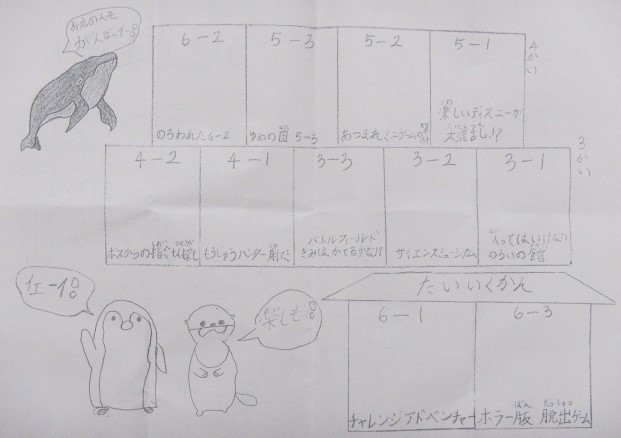 お店の人も
がんばってー!!
6－2
5－3
5－2
5－1
4かい
のろわれた6－2
ゆめの国 5－3
あつまれ ミニゲームの
楽しいディズニーが
大混乱!?
4－2
4－1
3－3
3－2
3－1
3かい
ボスからの指令
もうじゅうハンター
バトルフィールド
きみは、かてるかな!?
サイエンスミュージアム
入ってはいけない
のろいの館
イェーイ!!
楽しも
たいいくかん
6－1
6－3
チャレンジアドベンチャー
ホラー版 脱出ゲーム